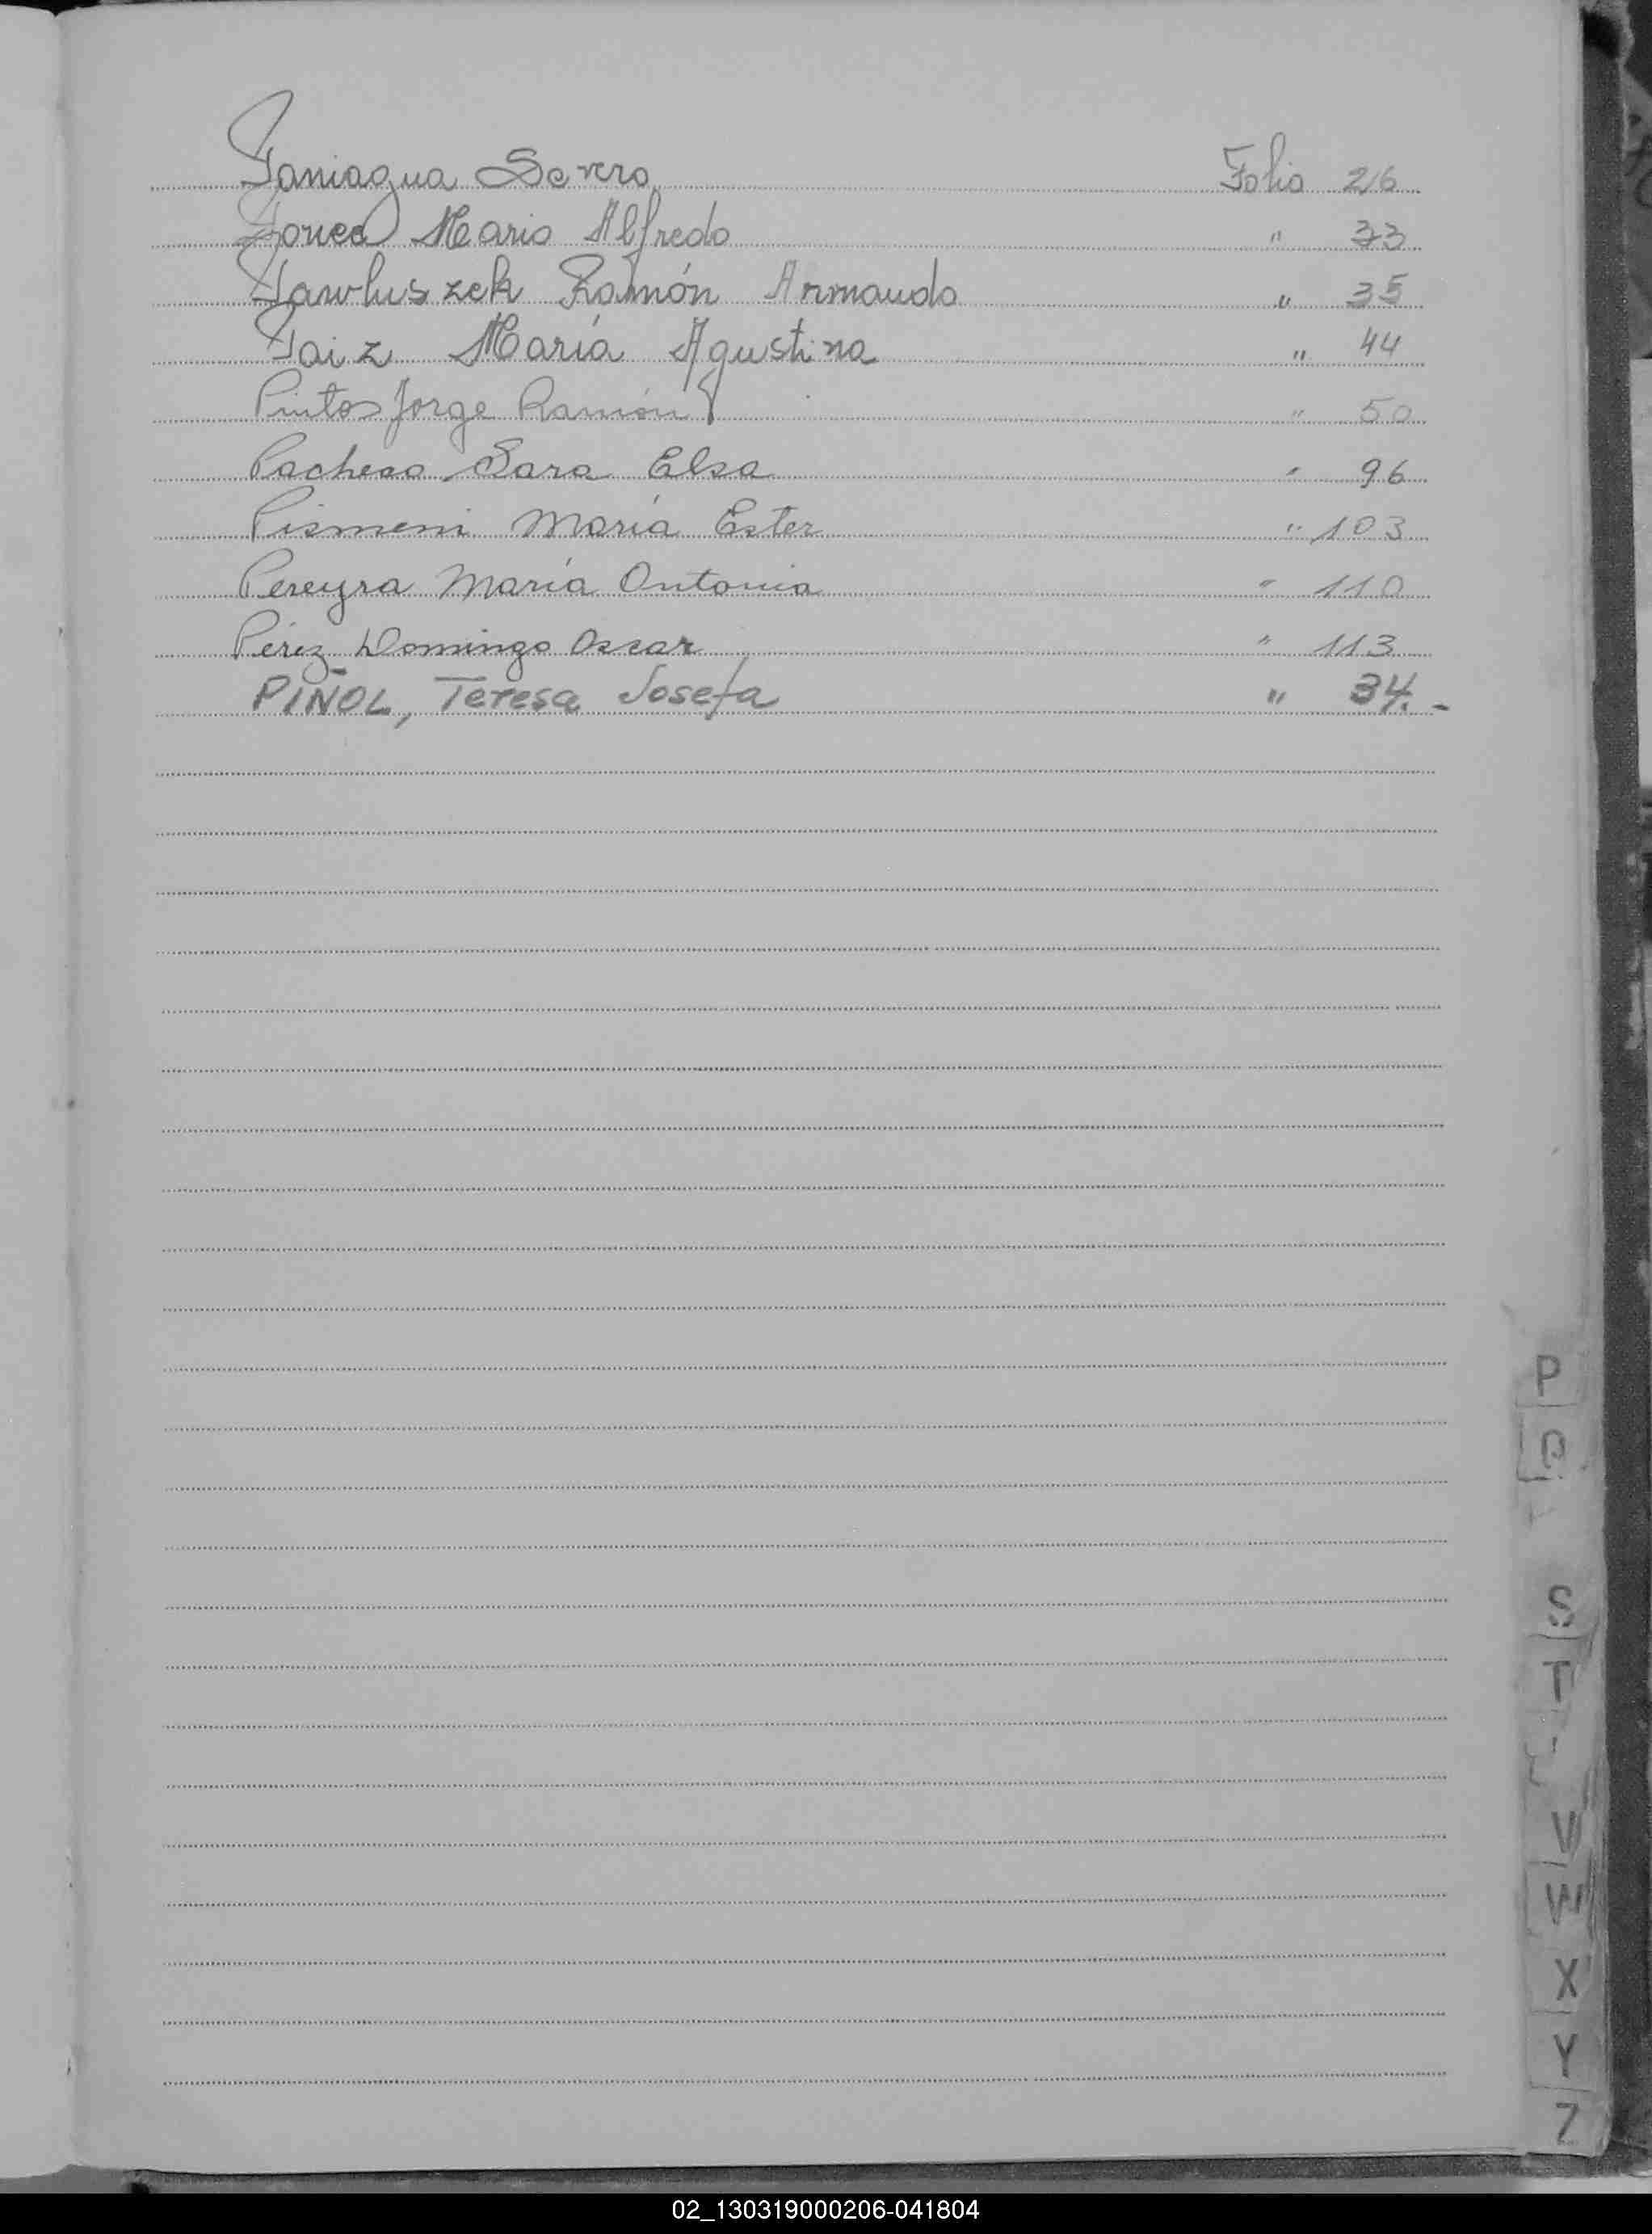 Paniagua Severo Folio 26
Ponce Mario Alfredo " 33
Pawluszek Ramón Armando " 35
Paiz María Agustina " 44
Pintos Jorge Ramón " 50
Pacheco, Sara Elsa " 96
María Ester " 103
Pereyra María Antonia " 110
Pérez Domingo Oscar " 113
PIÑOL, Teresa Josefa " 34.-
P
Q
S
T
V
W
X
Y
Z
02_130319000206-041804